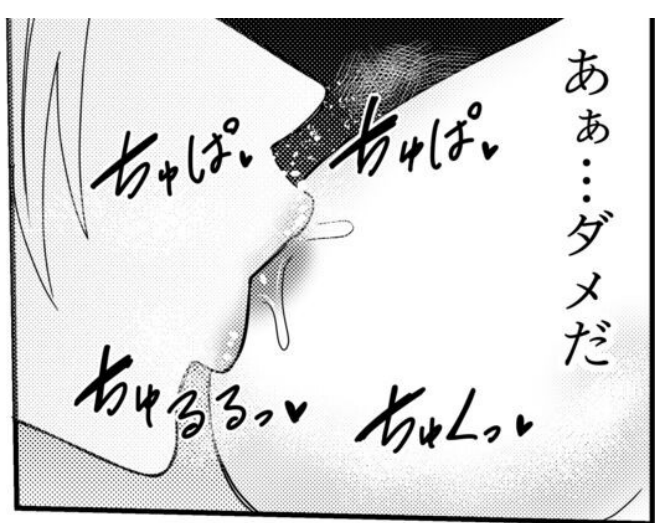 あぁ…ダメだ
ちゅぱ♥
ちゅぱ♥
ちゅくっ♥
ちゅるるっ♥